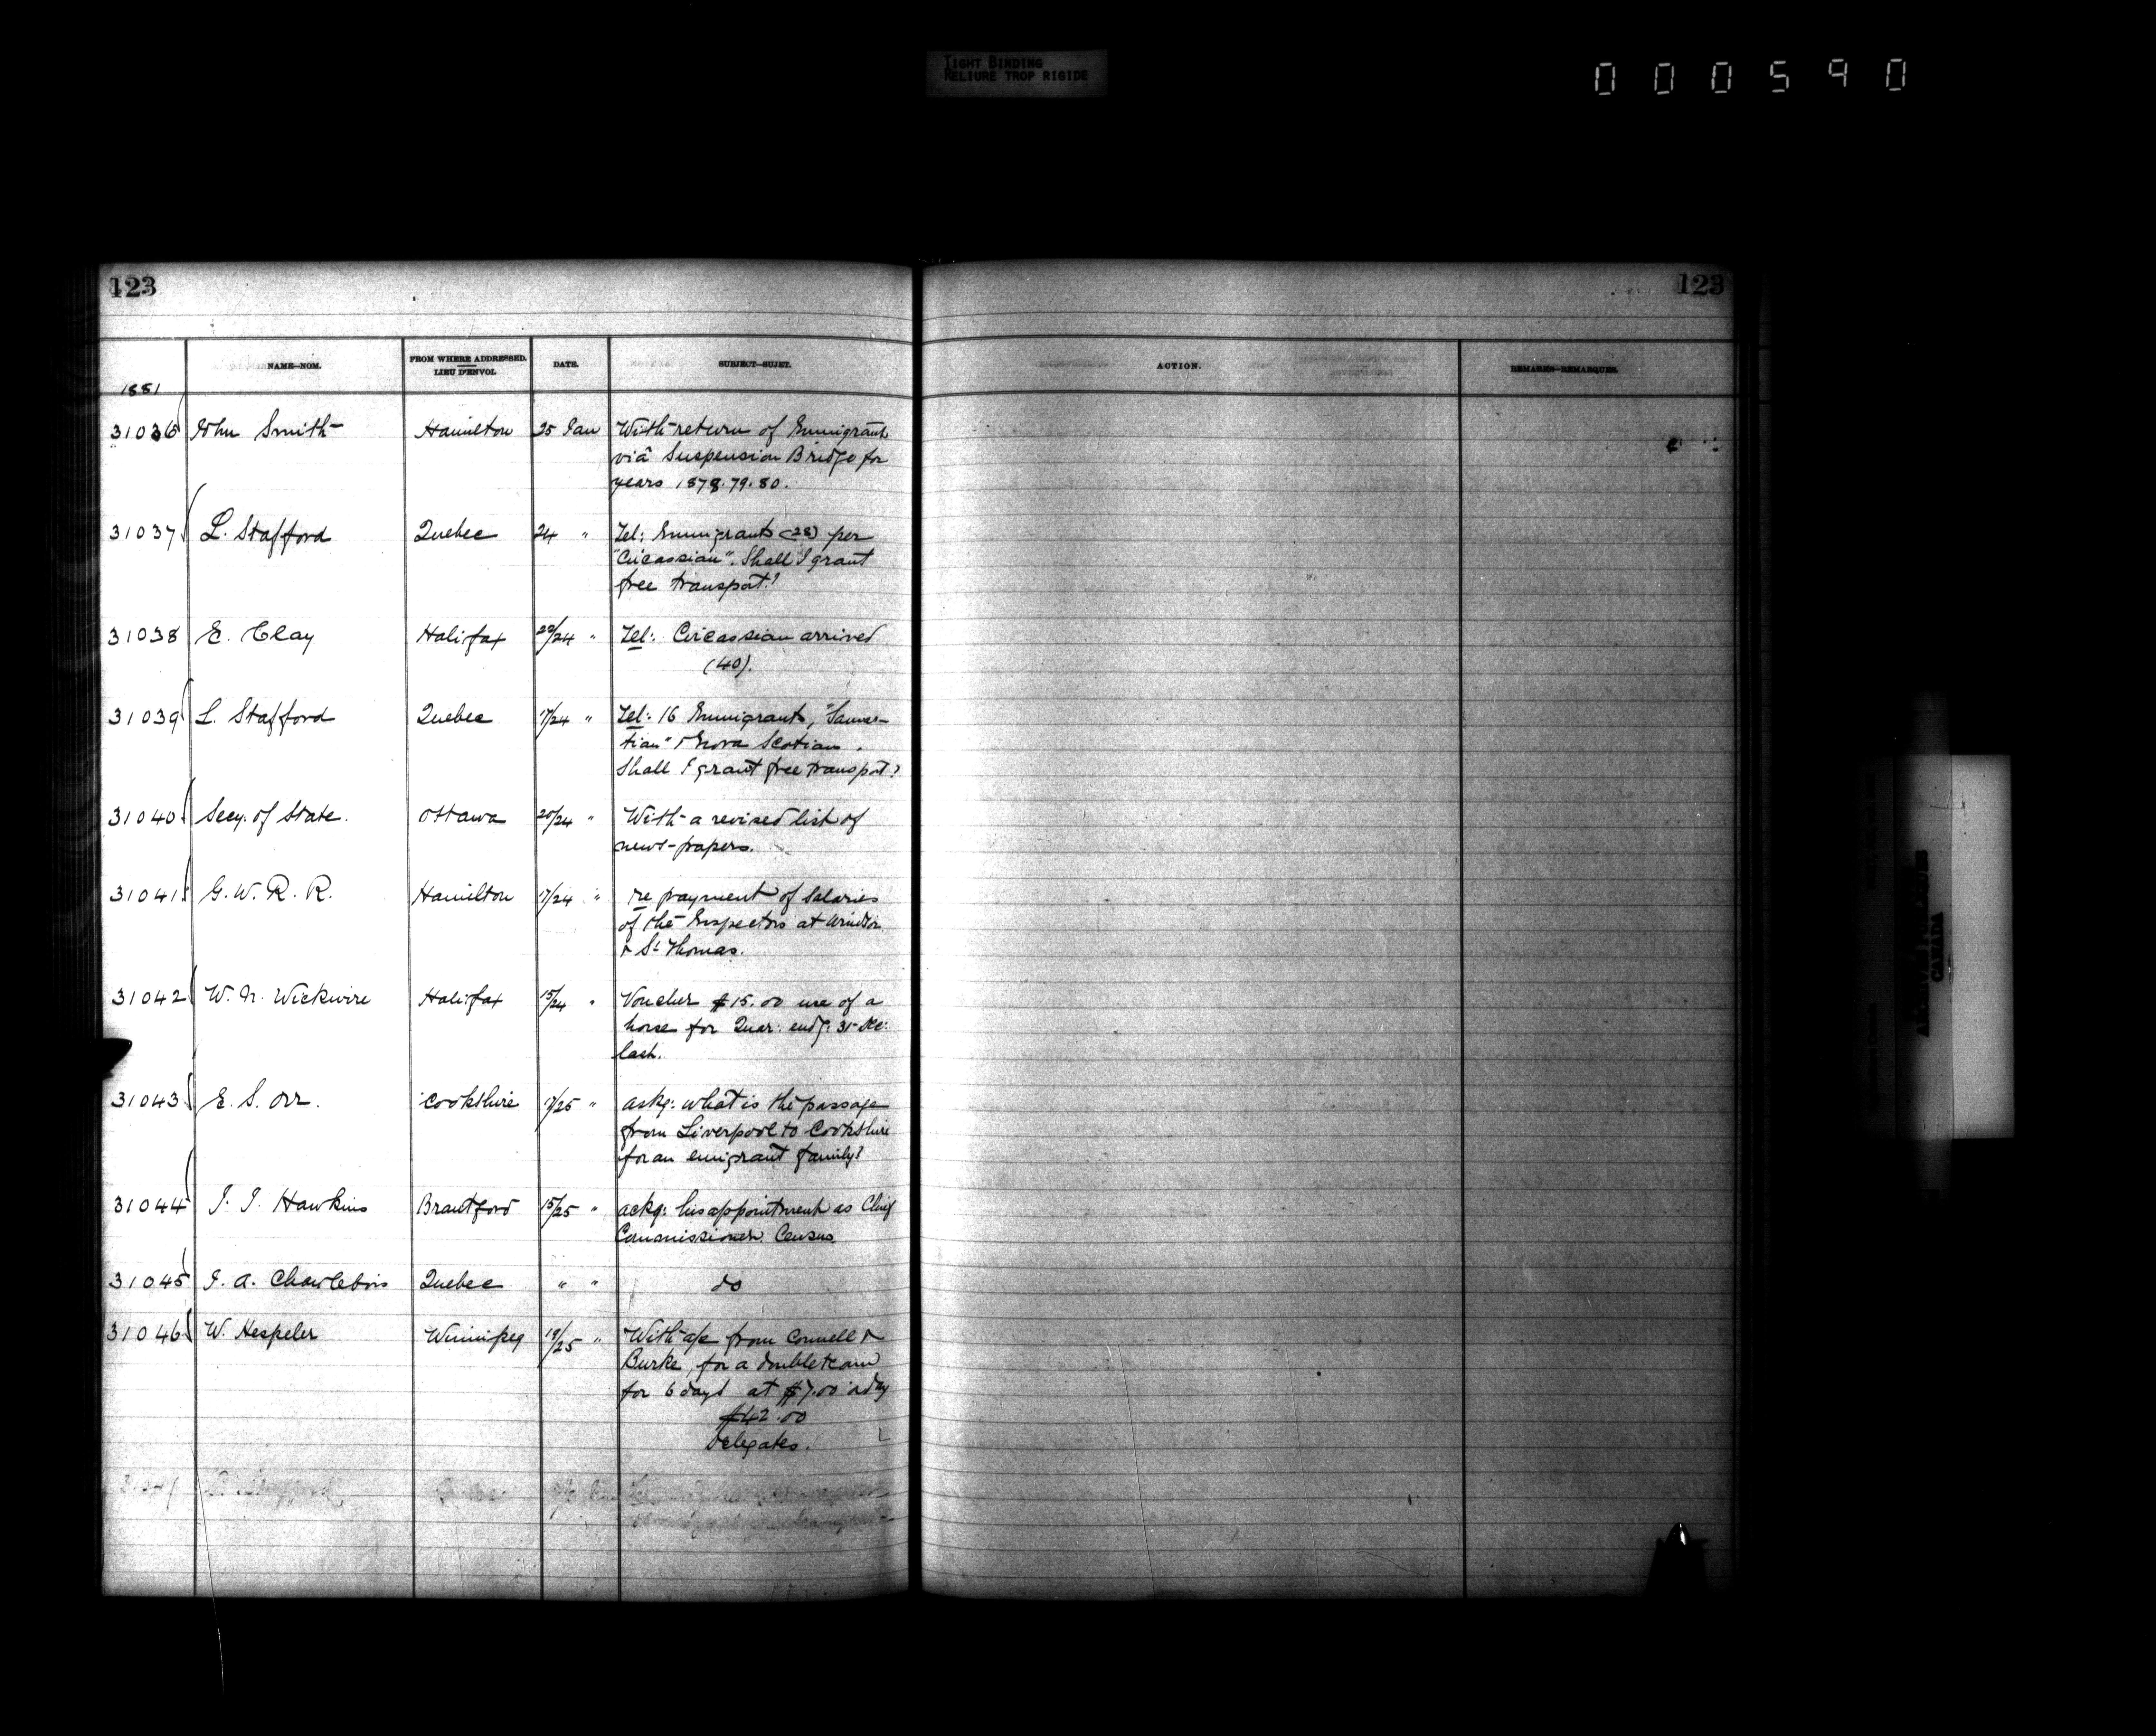 TIGHT BINDING
RELIURE TROP RIGIDE
000590
123
123
NAME—NOM.
FROM WHERE ADDRESSED.
LIEU D'ENVOI.
DATE.
SUBJECT—SUJET.
ACTION.
REMARKS—REMARQUES.
1881
31036 John Smith Hamilton 25 Jan With return of Immigrants
viâ Suspension Bridge for
years 1878.79.80.
31037 L. Stafford Quebec 24 " Tel: Immigrants (28) per
"Circassian". Shall I grant
free transport?
31038 E. Clay Halifax 22/24 " Tel: Circassian arrived
(40).
31039 L. Stafford Quebec 17/24 " Tel: 16 Immigrants, "Sarma-
tian" & Nova Scotian.
Shall I grant free transport?
31040 Secy. of State. Ottawa 20/24 " With a revised list of
news-papers.
31041 G. W. R. R. Hamilton 17/24 " re payment of Salaries
of the Inspectors at Windsor
& St Thomas.
31042 W. N. Wickwire Halifax 15/24 " Voucher $15.00 use of a
horse for Quar: endg: 31 Dec:
last.
31043 E. S. Orr. Cookshire /25 " askg: what is the passage
from Liverpool to Cookshire
for an emigrant family?
31044 J. J. Hawkins Brantford 15/25 " ackg: his appointment as Chief
Commissioner Census.
31045 J. A. Charlebois Quebec " " do
31046 W. Hespeler Winnipeg 18/25 " With a/c from Connell &
Burke, for a double team
for 6 days at $7.00 a day
$42.00
Delegates.